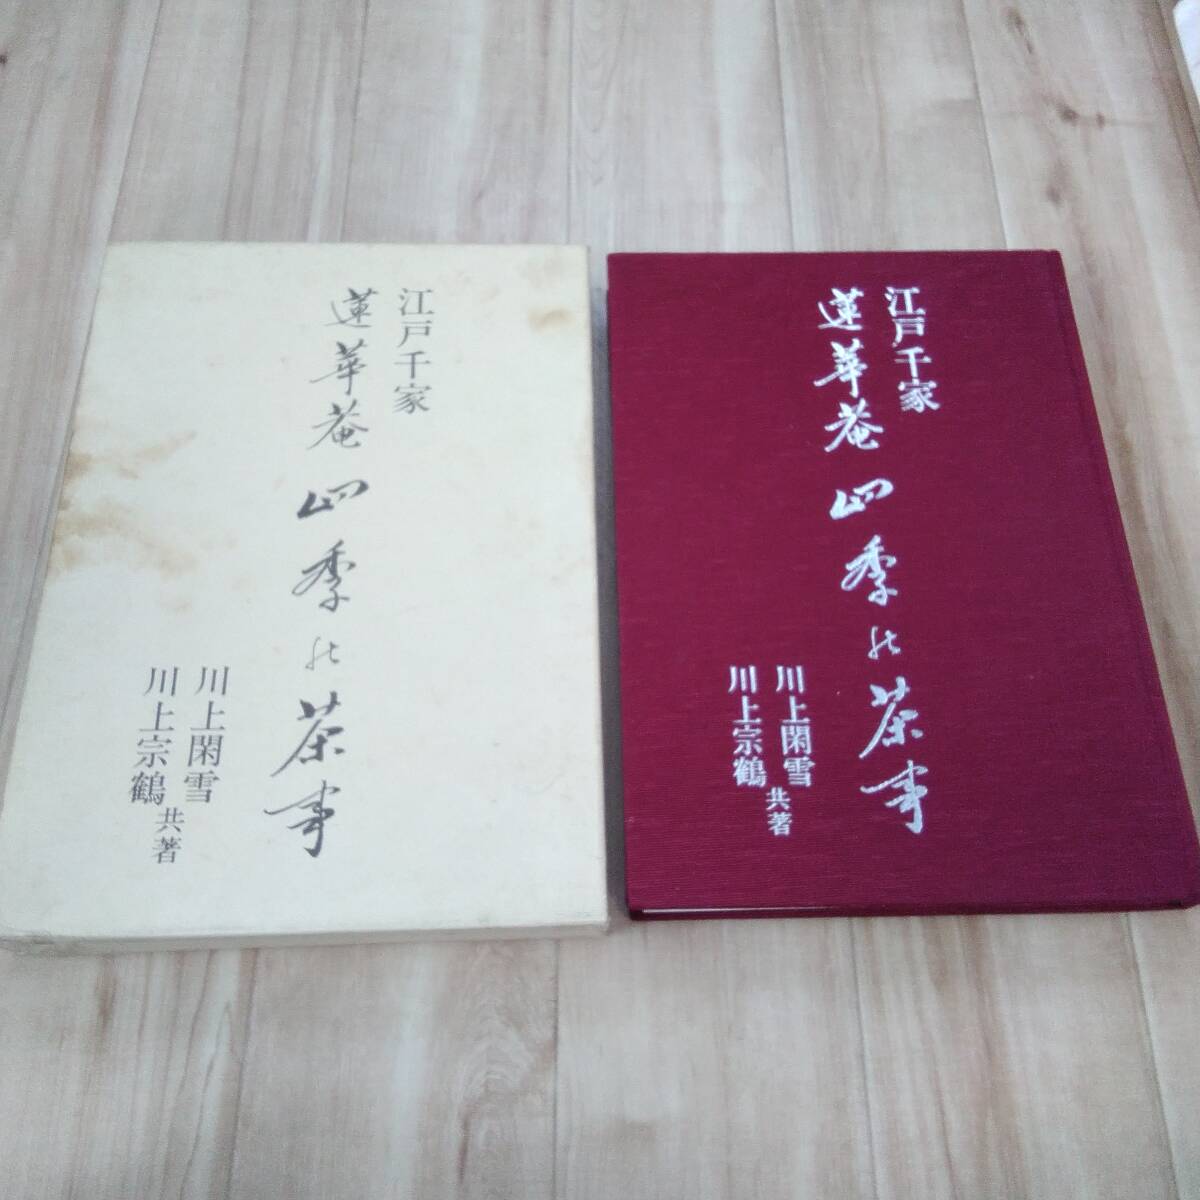 江戸千家
蓮華菴 四季の茶事
川上閑雪
川上宗鶴
共著
江戸千家
蓮華菴 四季の茶事
川上閑雪
川上宗鶴
共著